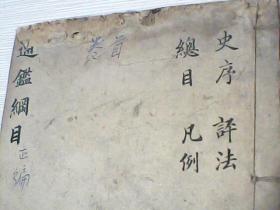 史序 評法
總目 凡例
卷首
通鑑綱目正編